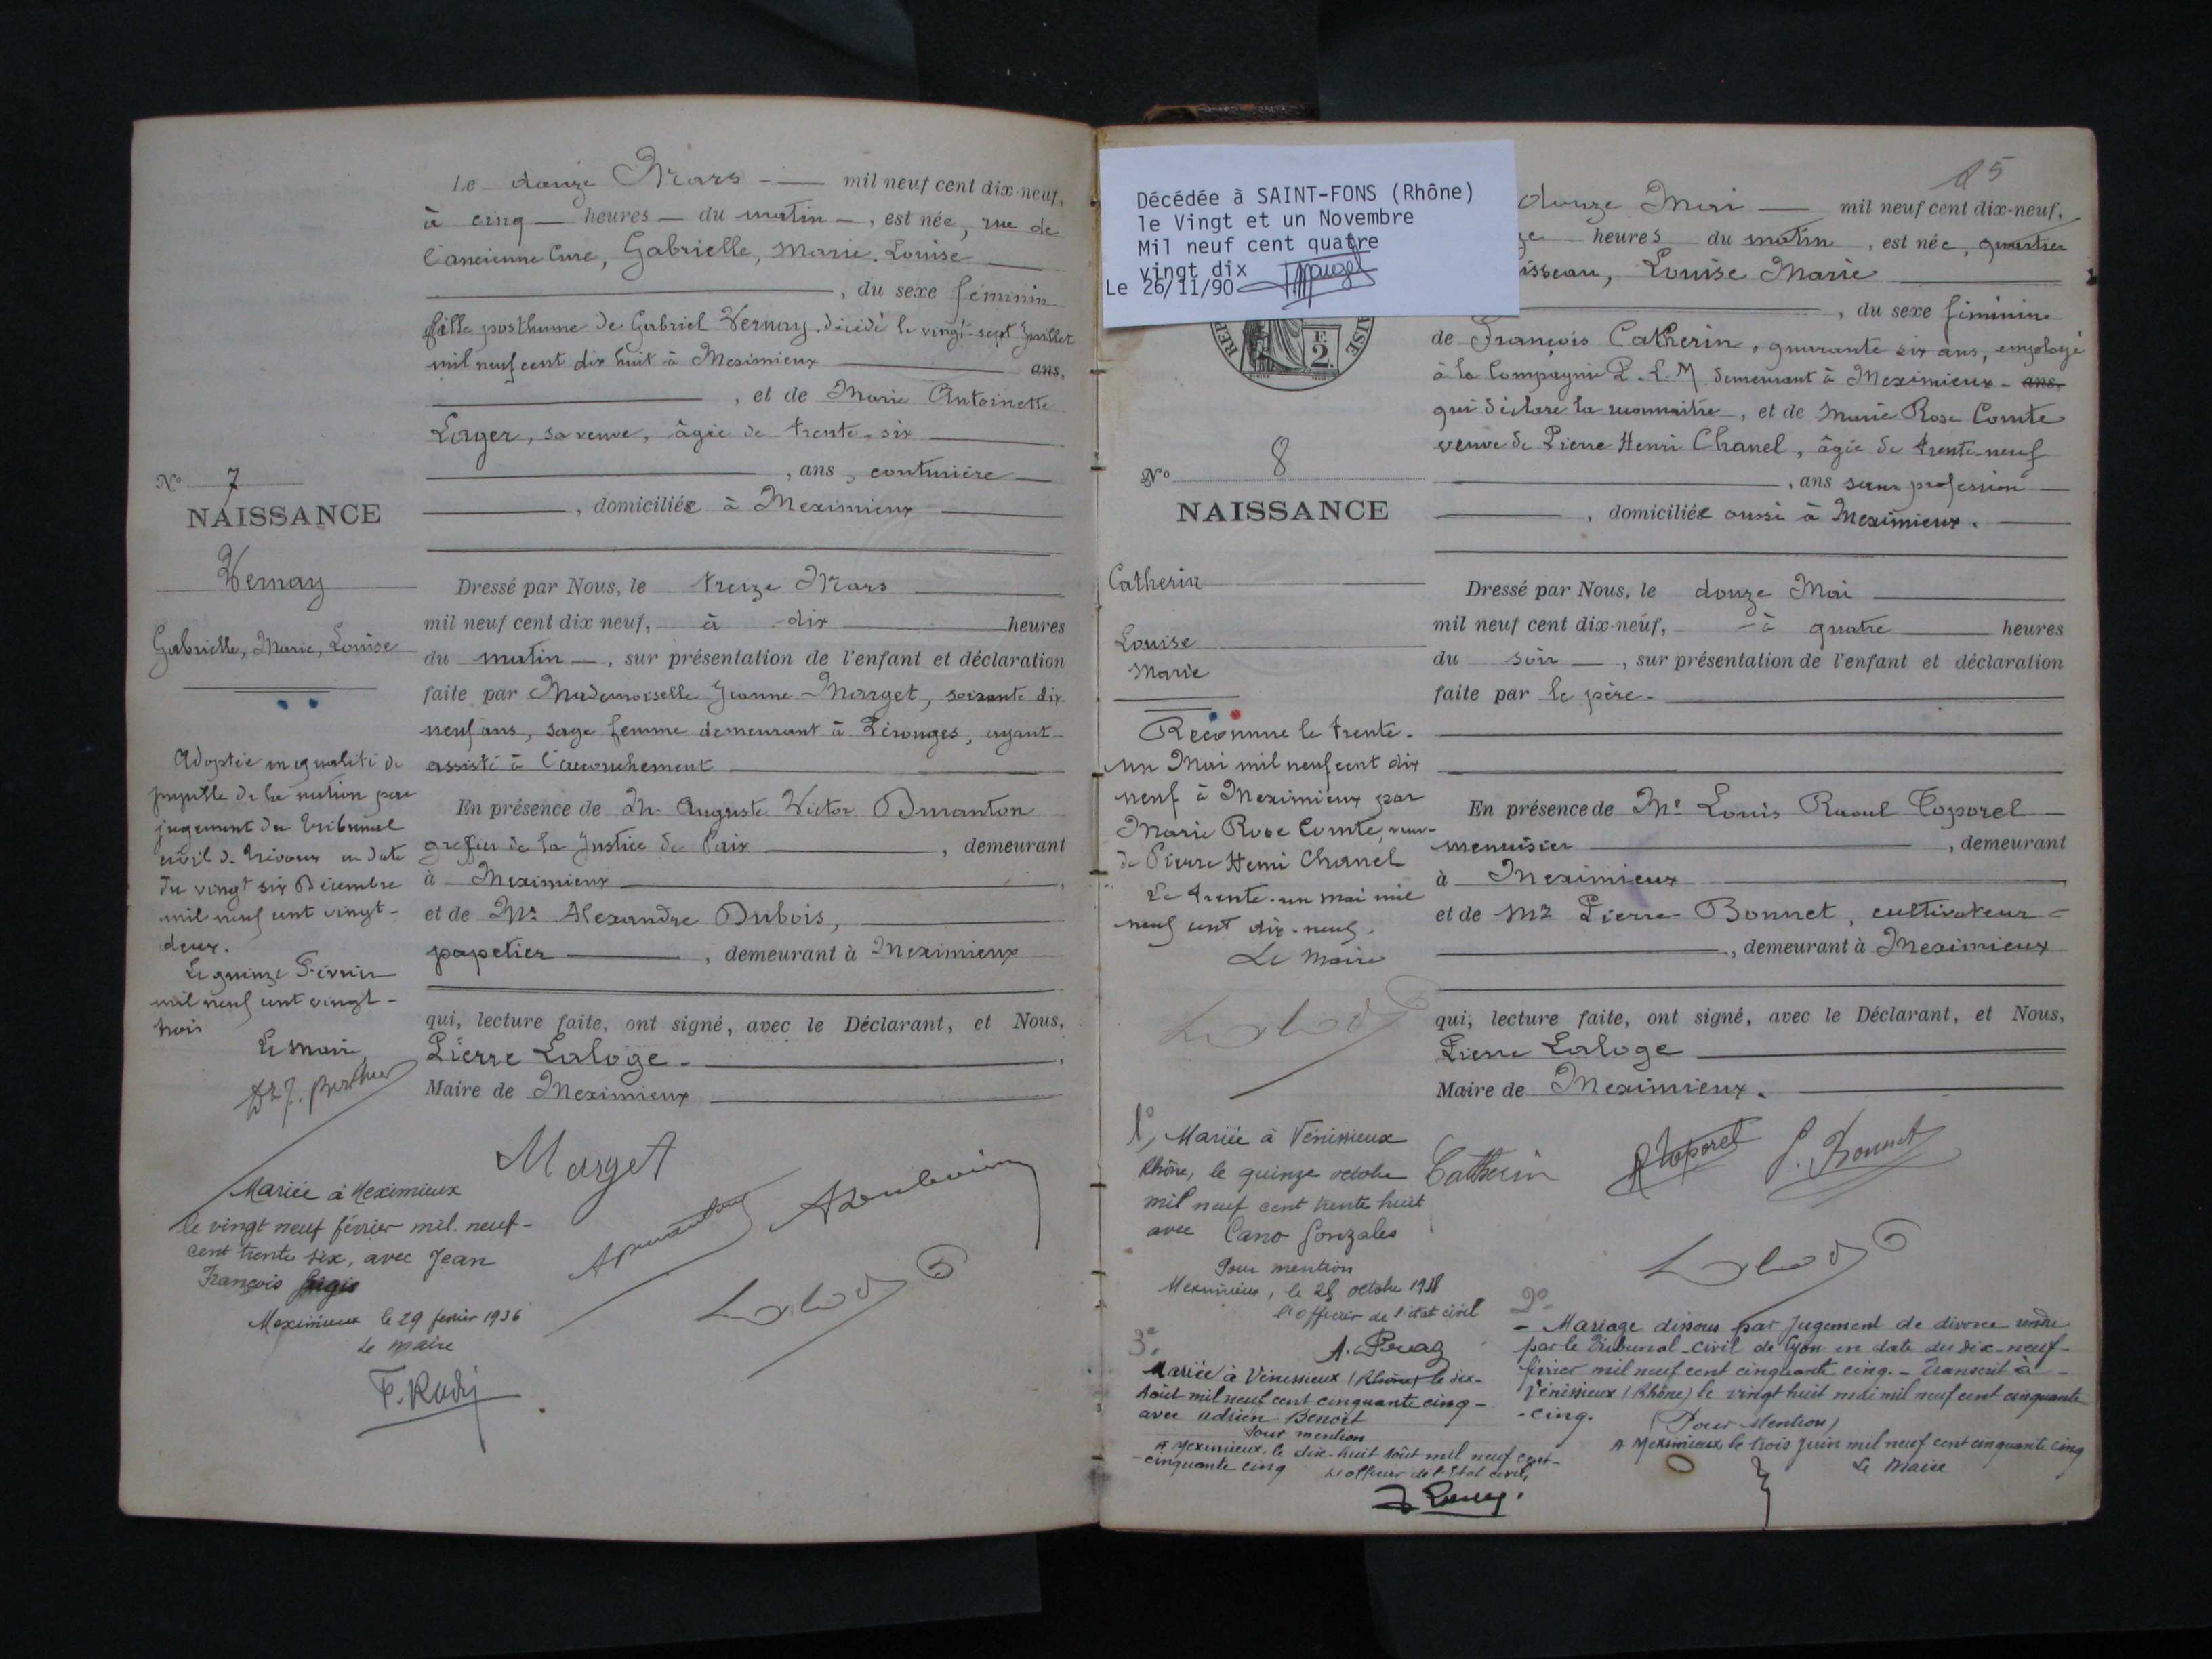 Le douze Mars mil neuf cent dix-neuf,
à cinq heures du matin, est née, rue de
l'ancienne Cure, Gabrielle, Marie, Louise
, du sexe féminin
fille posthume de Gabriel Vernay, décédé le vingt-sept Juillet
mil neuf cent dix huit à Meximieux ans,
, et de Marie Antoinette
Lager, sa veuve, âgée de trente-six
, ans, couturière
, domiciliée à Meximieux
N° 7
NAISSANCE
Vernay
Gabrielle, Marie, Louise
Dressé par Nous, le treize Mars
mil neuf cent dix neuf, à dix heures
du matin, sur présentation de l'enfant et déclaration
faite par Mademoiselle Jeanne Marget, soixante dix
neuf ans, sage femme demeurant à Pérouges, ayant
assisté à l'accouchement
En présence de M. Auguste Victor Duranton
greffier de la Justice de Paix, demeurant
à Meximieux
et de Mr Alexandre Dubois,
papetier, demeurant à Meximieux
qui, lecture faite, ont signé, avec le Déclarant, et Nous,
Pierre Laloge
Maire de Meximieux
Adoptée en qualité de
pupille de la nation par
jugement du Tribunal
civil de Trévoux en date
du vingt six Décembre
mil neuf cent vingt-
deux.
Le quinze Février
mil neuf cent vingt-
trois
Le Maire
Marget
Mariée à Meximieux
le vingt neuf février mil neuf-
cent trente six, avec Jean
François
Meximieux le 29 fevrier 1936
Le maire
Décédée à SAINT-FONS (Rhône)
le Vingt et un Novembre
Mil neuf cent quatre
vingt dix
Le 26/11/90
25
douze Mai mil neuf cent dix-neuf,
heures du matin, est née, quartier
isseau, Louise Marie
, du sexe féminin
de François Catherin, quarante six ans, employé
à la Compagnie P.L.M demeurant à Meximieux ans,
qui déclare la reconnaitre, et de Marie Rose Comte
veuve de Pierre Henri Chanel, âgée de trente-neuf
, ans sans profession
, domiciliée aussi à Meximieux.
N° 8
NAISSANCE
Catherin
Louise
Marie
Dressé par Nous, le douze Mai
mil neuf cent dix-neuf, à quatre heures
du soir, sur présentation de l'enfant et déclaration
faite par le père.
En présence de Mr Louis Raoul Toporel
menuisier, demeurant
à Meximieux
et de Mr Pierre Bonnet, cultivateur
, demeurant à Meximieux
qui, lecture faite, ont signé, avec le Déclarant, et Nous,
Pierre Laloge
Maire de Meximieux.
Reconnue le trente-
un Mai mil neuf cent dix
neuf à Meximieux par
Marie Rose Comte, veuve
de Pierre Henri Chanel
Le trente-un mai mil
neuf cent dix-neuf.
Le Maire
Catherin
Toporel
P. Bonnet
1° Mariée à Vénissieux
Rhône, le quinze octobre
mil neuf cent trente huit
avec Cano Gonzales
Pour mention
Meximieux, le 28 octobre 1938
l'officier de l'état civil
2°
- Mariage dissous par Jugement de divorce rendu
par le Tribunal civil de Lyon en date du dix-neuf-
février mil neuf cent cinquante cinq. - Transcrit à
Vénissieux (Rhône) le vingt huit mai mil neuf cent cinquante
-cinq. (Pour Mention)
A Meximieux le trois Juin mil neuf cent cinquante cinq
Le Maire
3°
Mariée à Vénissieux (Rhône) le six-
Août mil neuf cent cinquante cinq -
avec Adrien Benoit
Pour mention
A Meximieux, le dix-huit Août mil neuf cent-
-cinquante cinq L'officier de l'Etat civil,